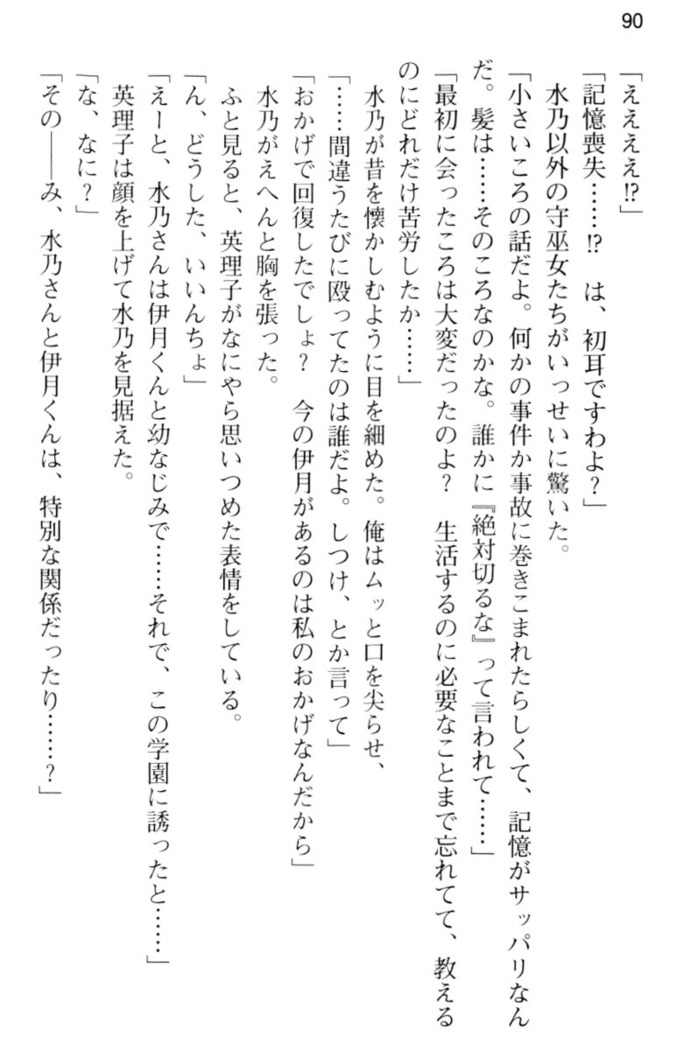 90
「ええええ!?」
「記憶喪失……!?　は、初耳ですわよ？」
水乃以外の守巫女たちがいっせいに驚いた。
「小さいころの話だよ。何かの事件か事故に巻きこまれたらしくて、記憶がサッパリなん
だ。髪は……そのころなのかな。誰かに『絶対切るな』って言われて……」
「最初に会ったころは大変だったのよ？　生活するのに必要なことまで忘れてて、教える
のにどれだけ苦労したか……」
水乃が昔を懐かしむように目を細めた。俺はムッと口を尖らせ、
「……間違うたびに殴ってたのは誰だよ。しつけ、とか言って」
「おかげで回復したでしょ？　今の伊月があるのは私のおかげなんだから」
水乃がえへんと胸を張った。
ふと見ると、英理子がなにやら思いつめた表情をしている。
「ん、どうした、いいんちょ」
「えーと、水乃さんは伊月くんと幼なじみで……それで、この学園に誘ったと……」
英理子は顔を上げて水乃を見据えた。
「な、なに？」
「その――み、水乃さんと伊月くんは、特別な関係だったり……？」